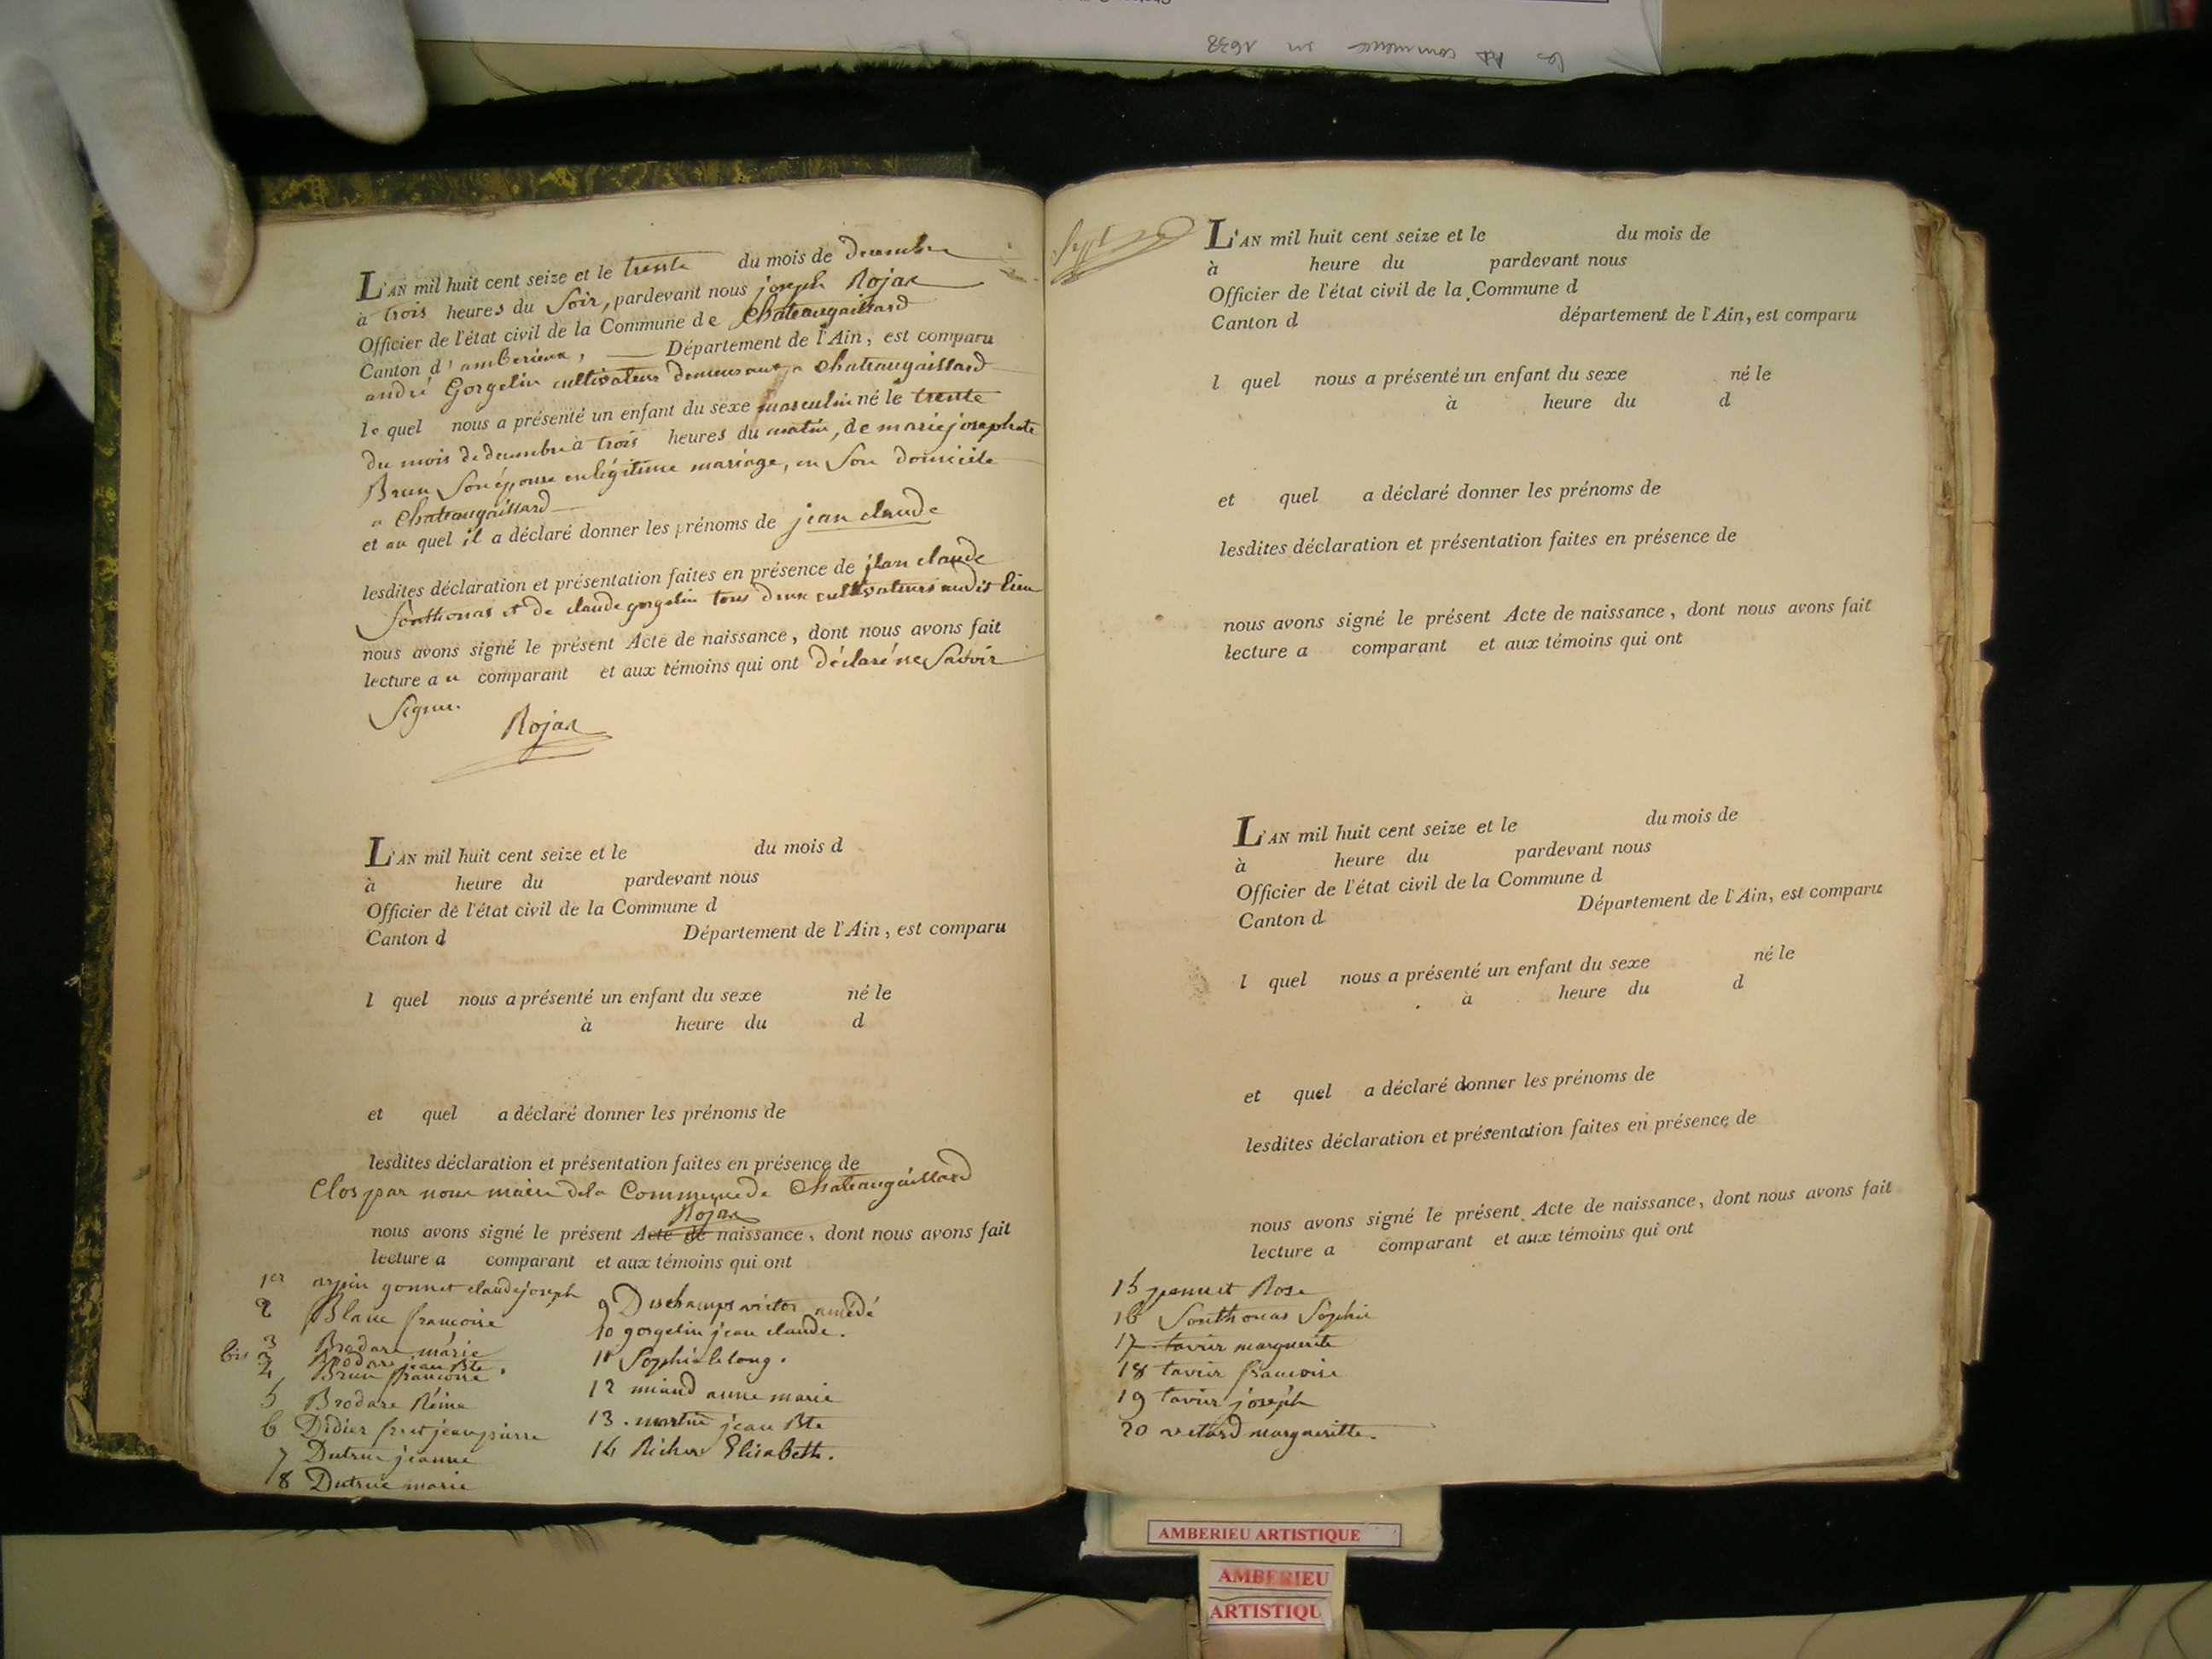 les  commence en 1638
L'AN mil huit cent seize et le trente du mois de decembre
à trois heures du Soir, pardevant nous joseph Rojat
Officier de l'état civil de la Commune de Chateaugaillard
Canton d'amberieux, Département de l'Ain, est comparu
andré Gorgelin cultivateur demeurant a Chateaugaillard
le quel nous a présenté un enfant du sexe masculin né le trente
du mois de decembre à trois heures du matin, de marie josephete
Brun Son épouse en légitime mariage, en Son domicile
a Chateaugaillard
et au quel il a déclaré donner les prénoms de jean claude
lesdites déclaration et présentation faites en présence de jean claude
Sonthonas et de claude gorgelin tous deux cultivateurs audit lieu
nous avons signé le présent Acte de naissance, dont nous avons fait
lecture au comparant et aux témoins qui ont déclaré ne Savoir
Signer.
Rojat
L'AN mil huit cent seize et le du mois d
à heure du pardevant nous
Officier de l'état civil de la Commune d
Canton d Département de l'Ain, est comparu
l quel nous a présenté un enfant du sexe né le
à heure du d
et quel a déclaré donner les prénoms de
lesdites déclaration et présentation faites en présence de
Clos par nous maire de la Commune de Chateaugaillard
Rojat
nous avons signé le présent Acte de naissance, dont nous avons fait
lecture a comparant et aux témoins qui ont
1er arpin gonnet claude joseph
2 Blanc francoise
3 Brodare marie
bis 3 Brodare jean Bte.
4 Brun francoise
5 Brodare Reine
6 Didier jean pierre
7 Dutrue jeanne
8 Dutrue marie
9 Deschamps victor amédé
10 gorgelin jean claude.
11 Sophie lelong.
12 miand anne marie
13. martin jean Bte
14 Elisabeth.
L'AN mil huit cent seize et le du mois de
à heure du pardevant nous
Officier de l'état civil de la Commune d
Canton d département de l'Ain, est comparu
l quel nous a présenté un enfant du sexe né le
à heure du d
et quel a déclaré donner les prénoms de
lesdites déclaration et présentation faites en présence de
nous avons signé le présent Acte de naissance, dont nous avons fait
lecture a comparant et aux témoins qui ont
L'AN mil huit cent seize et le du mois de
à heure du pardevant nous
Officier de l'état civil de la Commune d
Canton d Département de l'Ain, est comparu
l quel nous a présenté un enfant du sexe né le
à heure du d
et quel a déclaré donner les prénoms de
lesdites déclaration et présentation faites en présence de
nous avons signé le présent Acte de naissance, dont nous avons fait
lecture a comparant et aux témoins qui ont
15 Rose
16 Sonthonas Sophie
17 tavier marguerite
18 tavier francoise
19 tavier joseph
20 vetard margueritte.
AMBERIEU ARTISTIQUE
AMBERIEU
ARTISTIQU